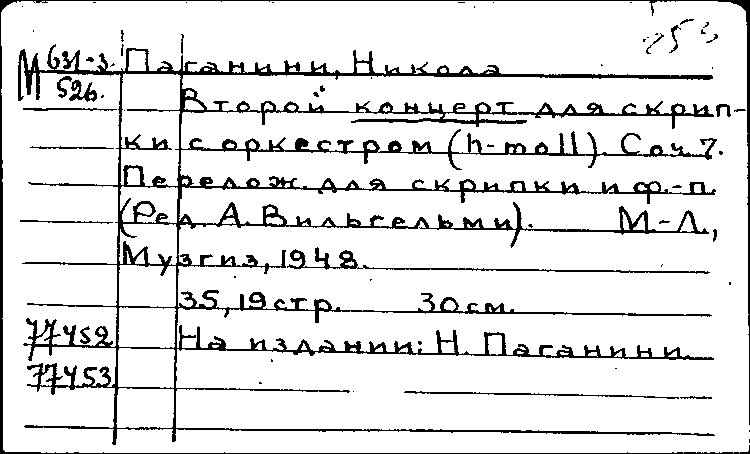 М 631-3. Паганини, Никола
526.
Второй концерт для скрип-
ки с оркестром (h-moll). Соч 7.
Перелож. для скрипки и ф.-п.
(Ред. А. Вильгельми). М-Л.,
Музгиз, 1948.
35, 19 стр. 30 см.
77452 На издании: Н. Паганини.
77453